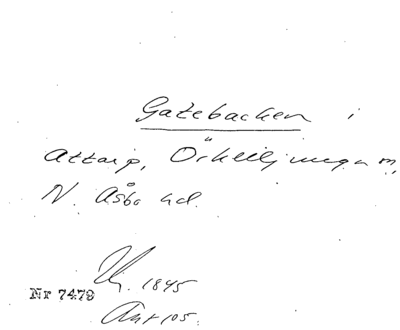 Gatebacken i
Attarp, Örkelljunga m,
N. Åsbo hd.
1845
Nr 7479
Ant 105.